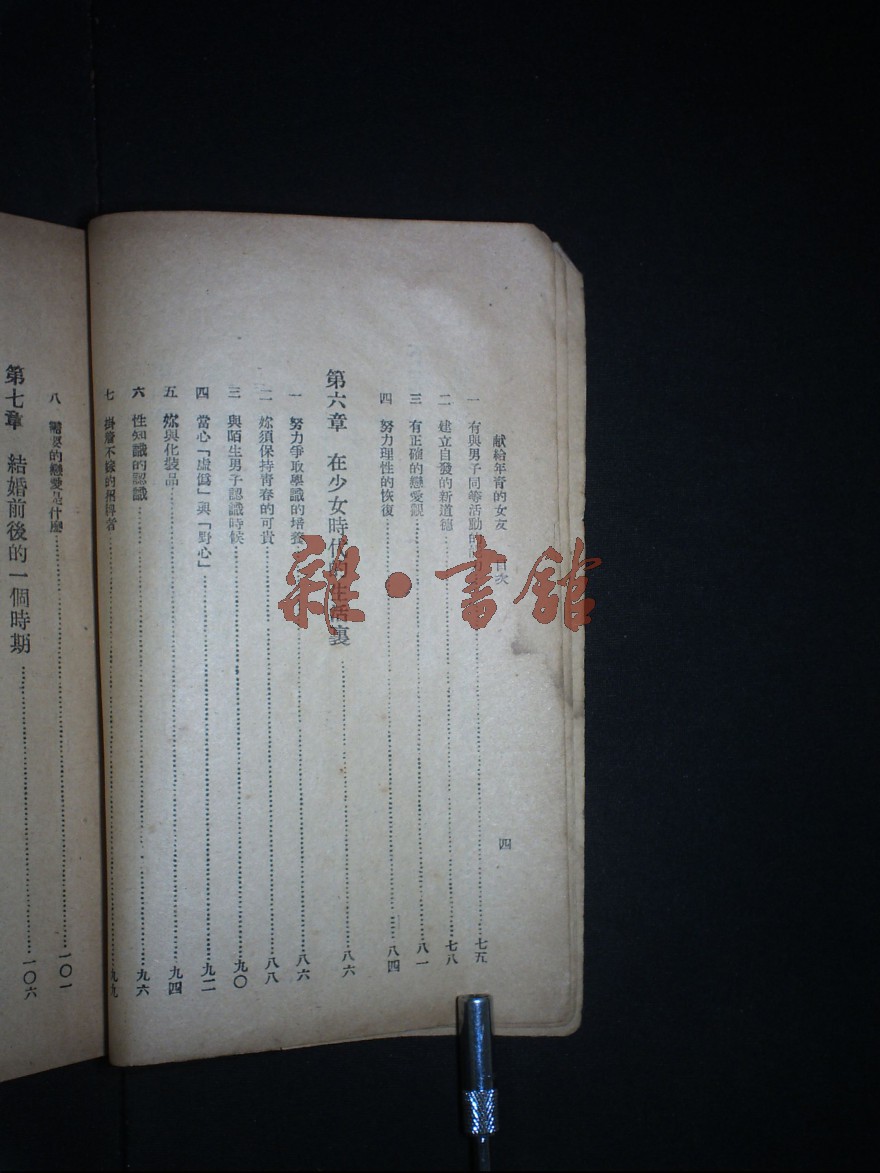 献給年青的女友 目次
四
一 有與男子同等活動的 七五
二 建立自發的新道德 七八
三 有正確的戀愛觀 八一
四 努力理性的恢復 八四
第六章 在少女時代的生活裏 八六
一 努力爭取學識的培養 八六
二 妳須保持青春的可貴 八八
三 與陌生男子認識時候 九〇
四 當心「虛僞」與「野心」 九二
五 妳與化裝品 九四
六 性知識的認識 九六
七 掛着不嫁的招牌者 九九
八 需要的戀愛是什麼 一〇一
第七章 結婚前後的一個時期 一〇六
雜·書館